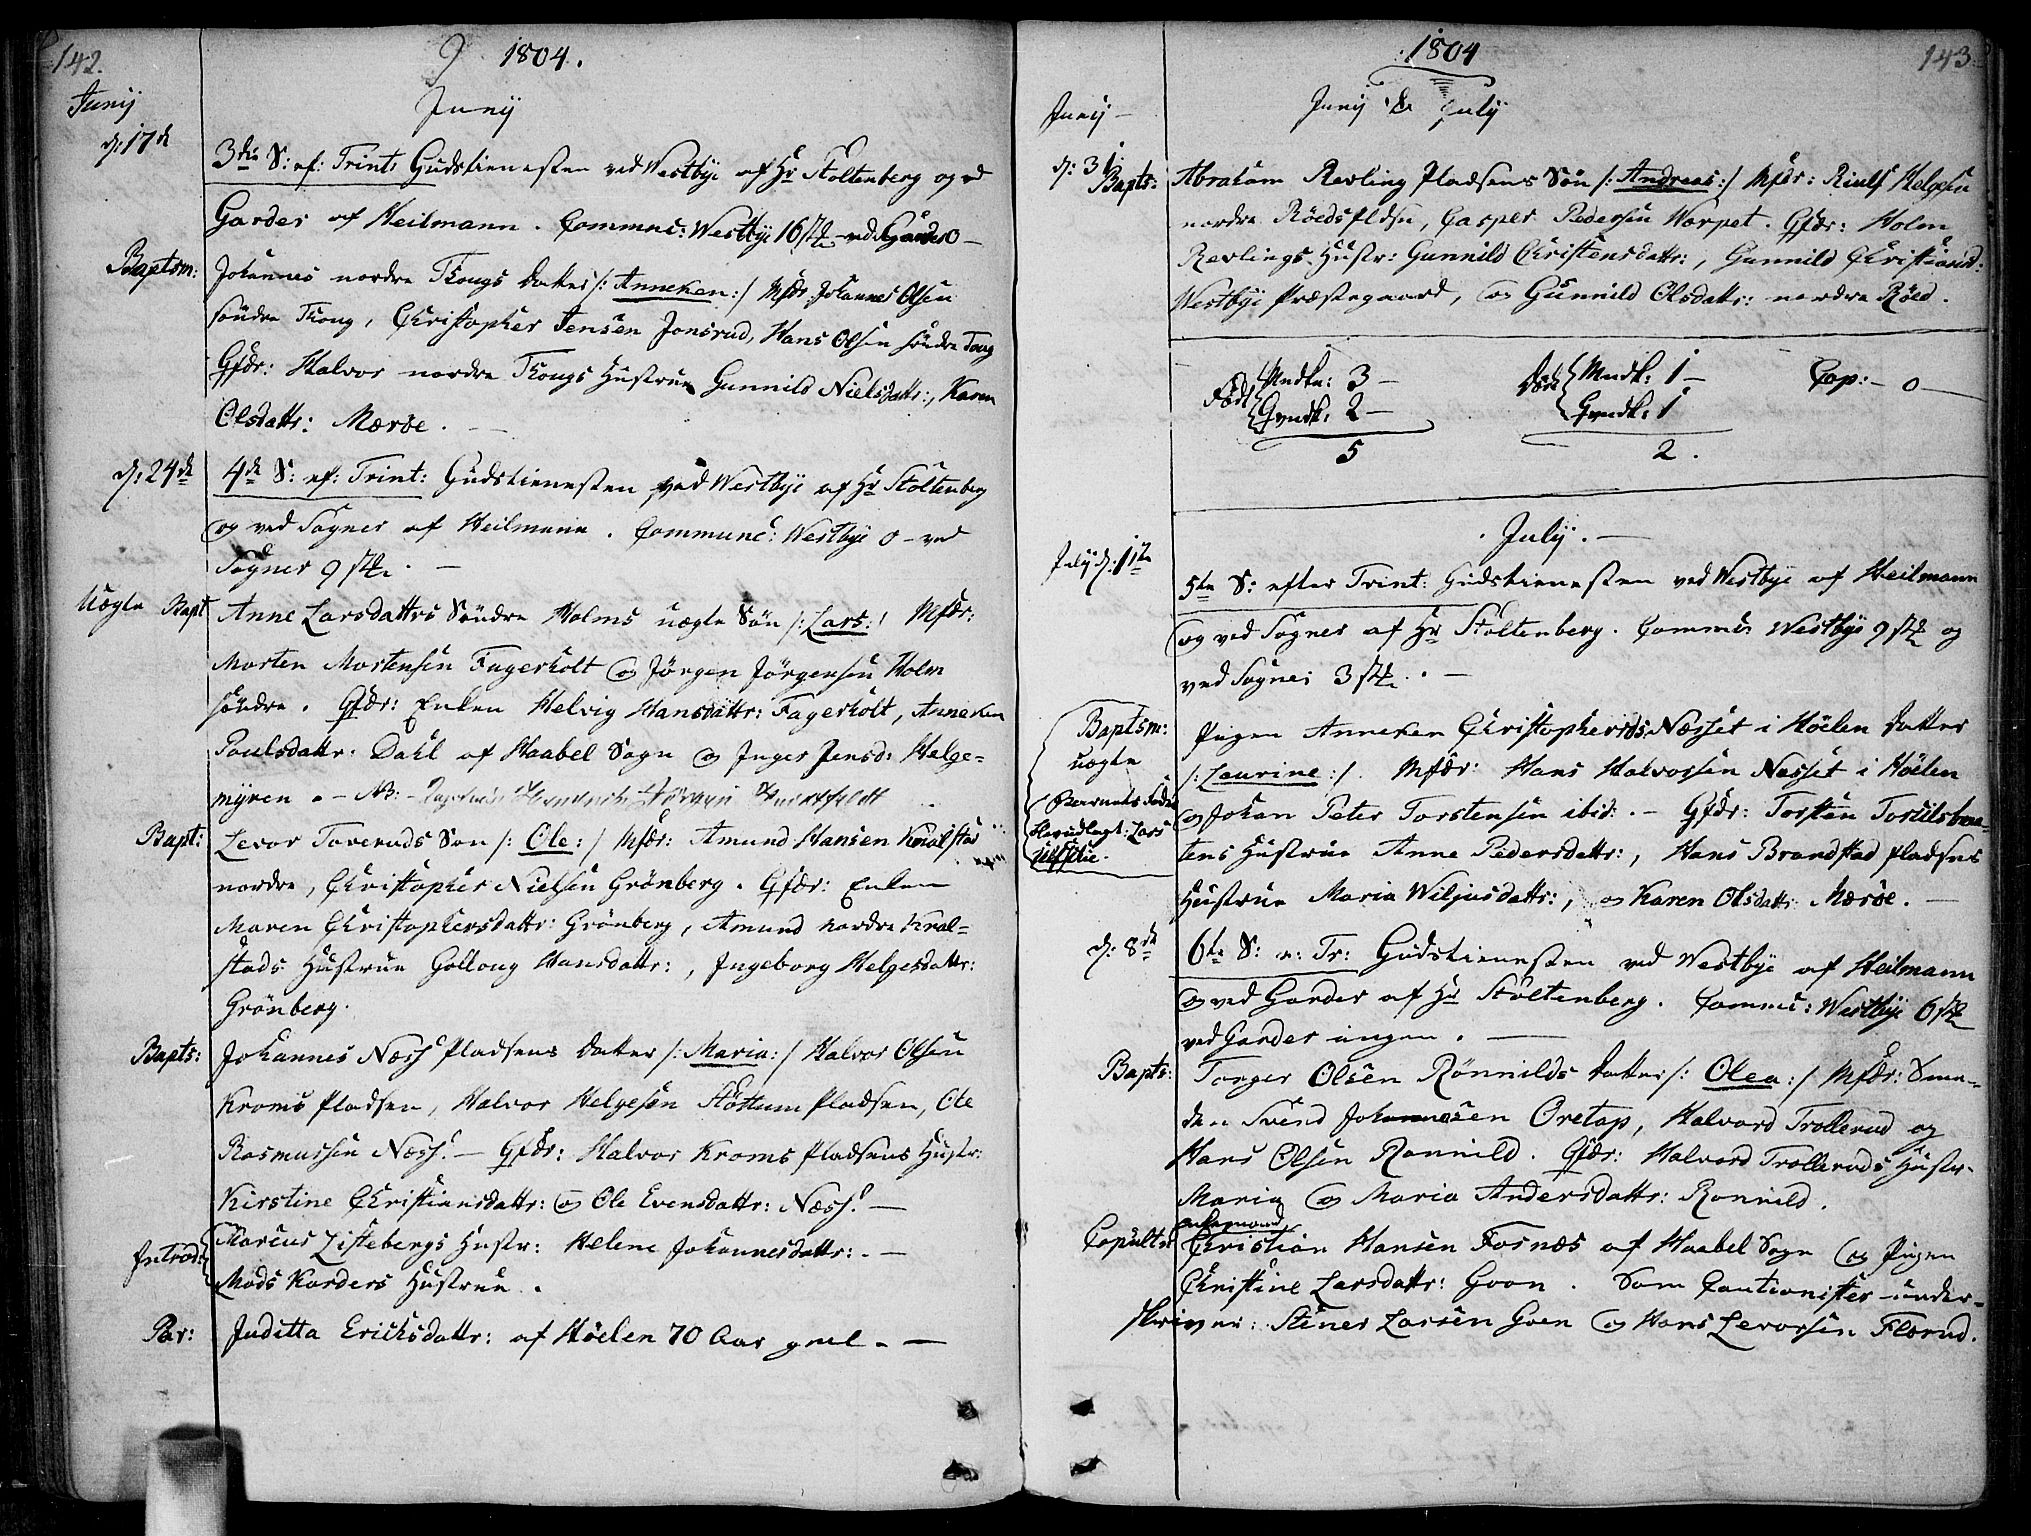 142.
1804.
Junij
Junij
d: 17de
3die S: ef: Trint: Gudstienesten ved Westbye af Hr Stoltenberg og ved
Garder af Heilmann. Communic: Westbye 16 stk. ved Garder 0 –
Baptsm:
Johannes nordre Thongs Datter /: Anneken :/ Mfdr: Johannes Olsen
søndre Thong, Christopher Jensen Jonsrud, Hans Olsen søndre Tong
Gfdr: Halvor nordre Thongs Hustrue Gunnild Nielsdattr:, Karen
Olsdattr: Mærøe. –
d: 24de
4de S: ef: Trint: Gudstienesten ved Westbye af Hr Stoltenberg
og ved Sogner af Heilmann. Communic: Westbye 0 – ved
Sogner 9 stk. –
Uægte Bapt
Anne Larsdatters Søndre Holms uægte Søn /: Lars :/ Mfdr:
Morten Mortensen Fagerholt og Jørgen Jørgensen Holm
søndre. Gfdr: Enken Helvig Hansdattr: Fagerholt, Anneken
Poulsdattr: Dahl af Haabel Sogn og Inger Jensd: Helge=
myren. – NB: –
Bapt:
Levor Taveruds Søn /: Ole :/ Mfdr: Amund Hansen Krolstad
nordre, Christopher Nielsen Grönberg. Gfdr: Enken
Maren Christophersdattr: Grönberg, Amund nordre Krol=
stads Hustrue Gollaug Hansdattr:, Ingeborg Helgesdattr:
Grönberg.
Bapts:
Johannes Næss Pladsens Datter /: Maria :/ Halvor Olsen
Kroms Pladsen, Halvor Helgesen Støttum Pladsen, Ole
Rasmussen Næss. – Gfdr: Halvor Kroms Pladsens Hustr:
Kirstine Christiansdattr: og Ole Evensdattr: Næss. –
Introd:
Marcus Listebergs Hustr: Helene Johannesdattr: –
Mads Korders Hustrue.
Par:
Juditta Ericksdattr: af Høelen 70 Aar gml. –
1804
143.
Junij –
Junij & Julij
d: 3
Bapts:
Abraham Revling Pladsens Søn /: Andreas :/ Mfdr: Riulf Helgesen
nordre Røedsplds:, Casper Pedersen Worpet. Gfdr: Holm
Revlings Hustr: Gunnild Christensdattr:, Gunnild Christiansd:
Westbye Præstegaard, og Gunnild Olsdattr: nordre Røed.
Født Mndk: 3 – Døde Mndk: 1 – Cop: – 0 –
Qvndk: 2 – Qvndk: 1
5 2.
Julij. –
Julij d: 1ste
5te S: efter Trint: Gudstienesten ved Westbye af Heilmann
og ved Sogner af Hr Stoltenberg. Commu: Westbye 9 stk og
ved Sogner 3 stk. –
Baptsm:
uægte
Barnets Fader
er udlagt: Lars
Pigen Anneken Christophersds: Næsset i Høelen Datter
/: Laurine :/. Mfdr: Hans Halvorsen Nesset i Höelen
og Johan Peter Torstensen ibid: – Gfdr: Torsten Torkilsbraa=
tens Hustrue Anne Pedersdattr:, Hans Brandstad Pladsens
Hustrue Maria Wiljusdattr:, og Karen Olsdattr: Mærøe. –
d: 8de
6te S: e: Tr: Gudstienesten ved Westbye af Heilmann
og ved Garder af Hr Stoltenberg. Commu: Westbye 6 stk
ved Garder ingen. –
Bapts:
Torger Olsen Rönnilds Datter /: Olea :/ Mfdr: Sme=
den Svend Johannesen Oretop, Halvord Trollerud og
Hans Olsen Ronnild. Gfdr: Halvord Trolleruds Hustr.
Maria og Maria Andersdattr: Ronnild.
Copult:
Enkemand
Christian Hansen Fosnæs af Haabel Sogn og Pigen
Christine Larsdattr: Goon. Som Cautionister under=
skriver: Stener Larsen Goen og Hans Levorsen Florud.